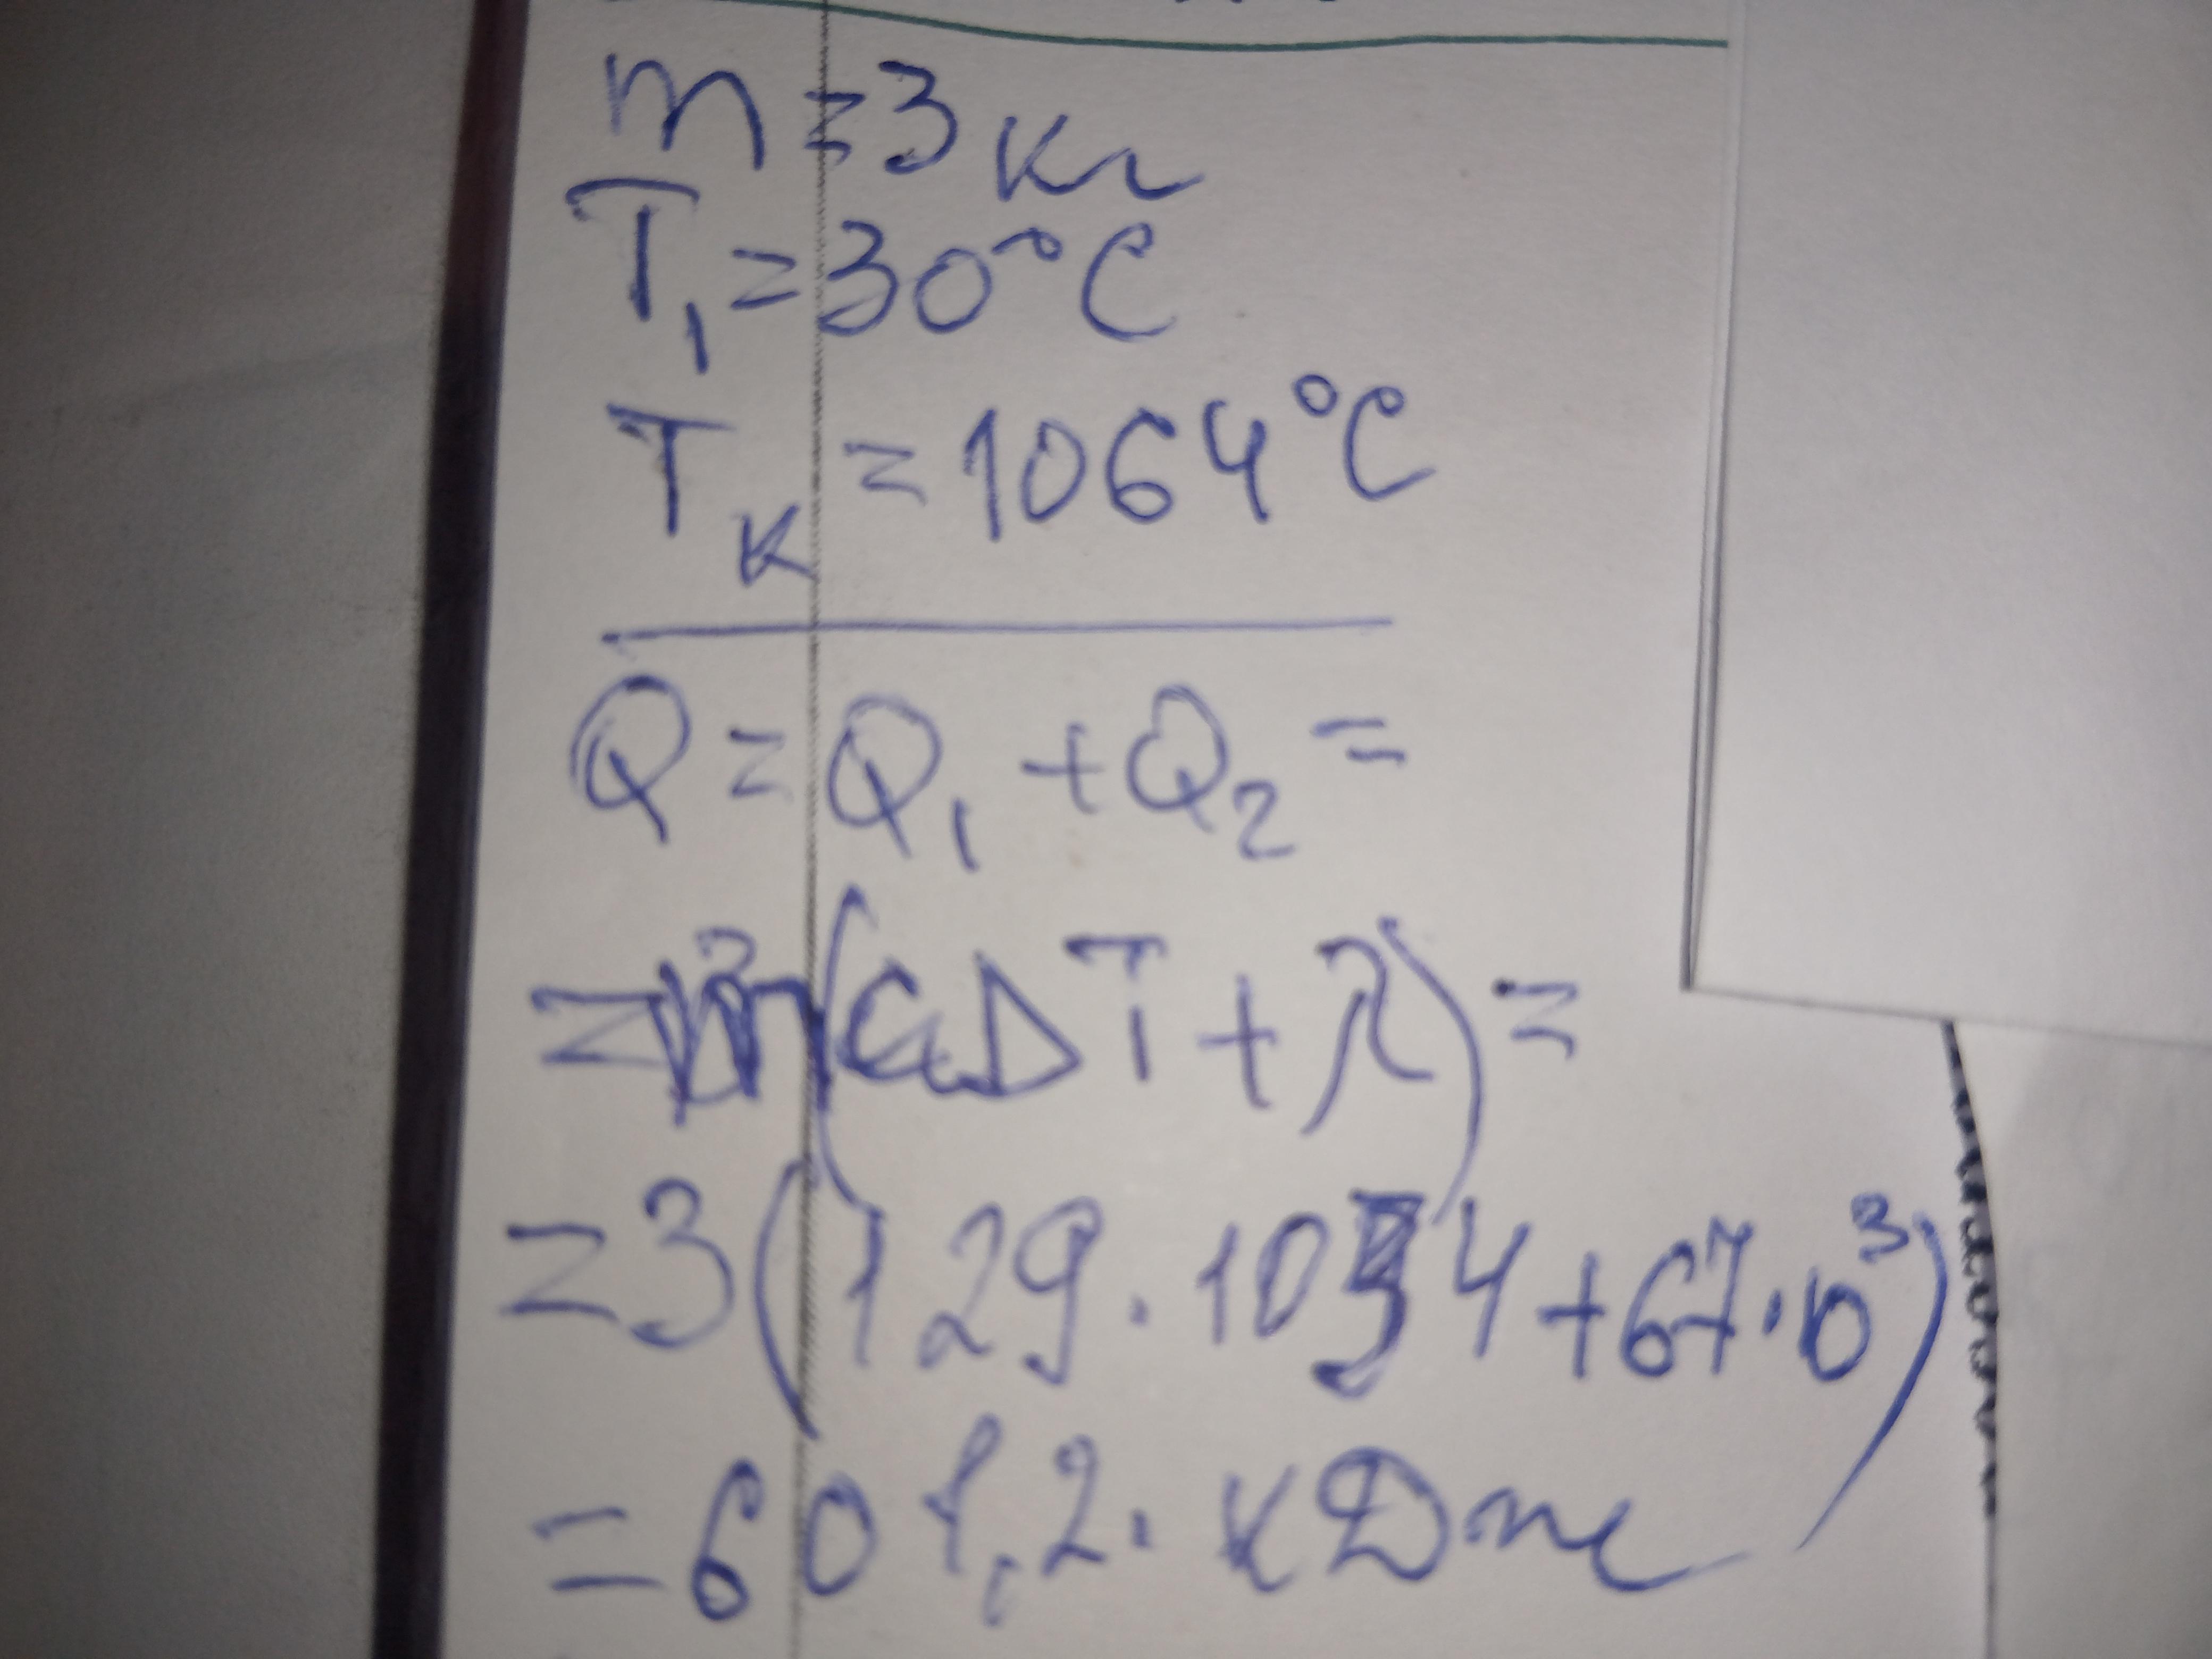 m = 3 кг
T₁ = 30°C
Tк = 1064°C
Q = Q₁ + Q₂ =
= m(cΔT + λ) =
= 3(129 · 1034 + 67·10³)
= 601,2 · кДж